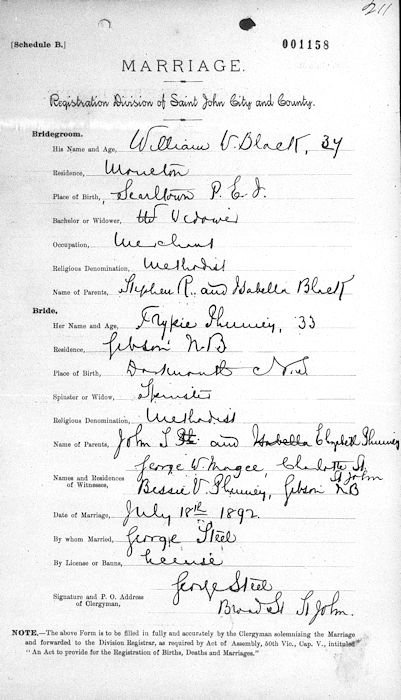 211
[Schedule B.] 001158
MARRIAGE.
Registration Division of Saint John City and County.
Bridegroom.
His Name and Age, William V. Black, 34
Residence, Moncton
Place of Birth, Searltown P. E. I.
Bachelor or Widower, Widower
Occupation, Merchant
Religious Denomination, Methodist
Name of Parents, Stephen R. and Isabella Black
Bride.
Her Name and Age, Phinney, 33
Residence, Gibson N B
Place of Birth, Dartmouth N. S.
Spinster or Widow, Spinster
Religious Denomination, Methodist
Name of Parents, John S and Isabella Elizabeth Phinney
George W. Magee, Charlotte St
St John
Names and Residences of Witnesses, Bessie V. Phinney, Gibson NB
Date of Marriage, July 18th 1892
By whom Married, George Steel
By License or Banns, License
George Steel
Signature and P. O. Address of Clergyman, Broad St St John.
NOTE,—The above Form is to be filled in fully and accurately by the Clergyman solemnizing the Marriage
and forwarded to the Division Registrar, as required by Act of Assembly, 50th Vic., Cap. V., intituled
"An Act to provide for the Registration of Births, Deaths and Marriages."